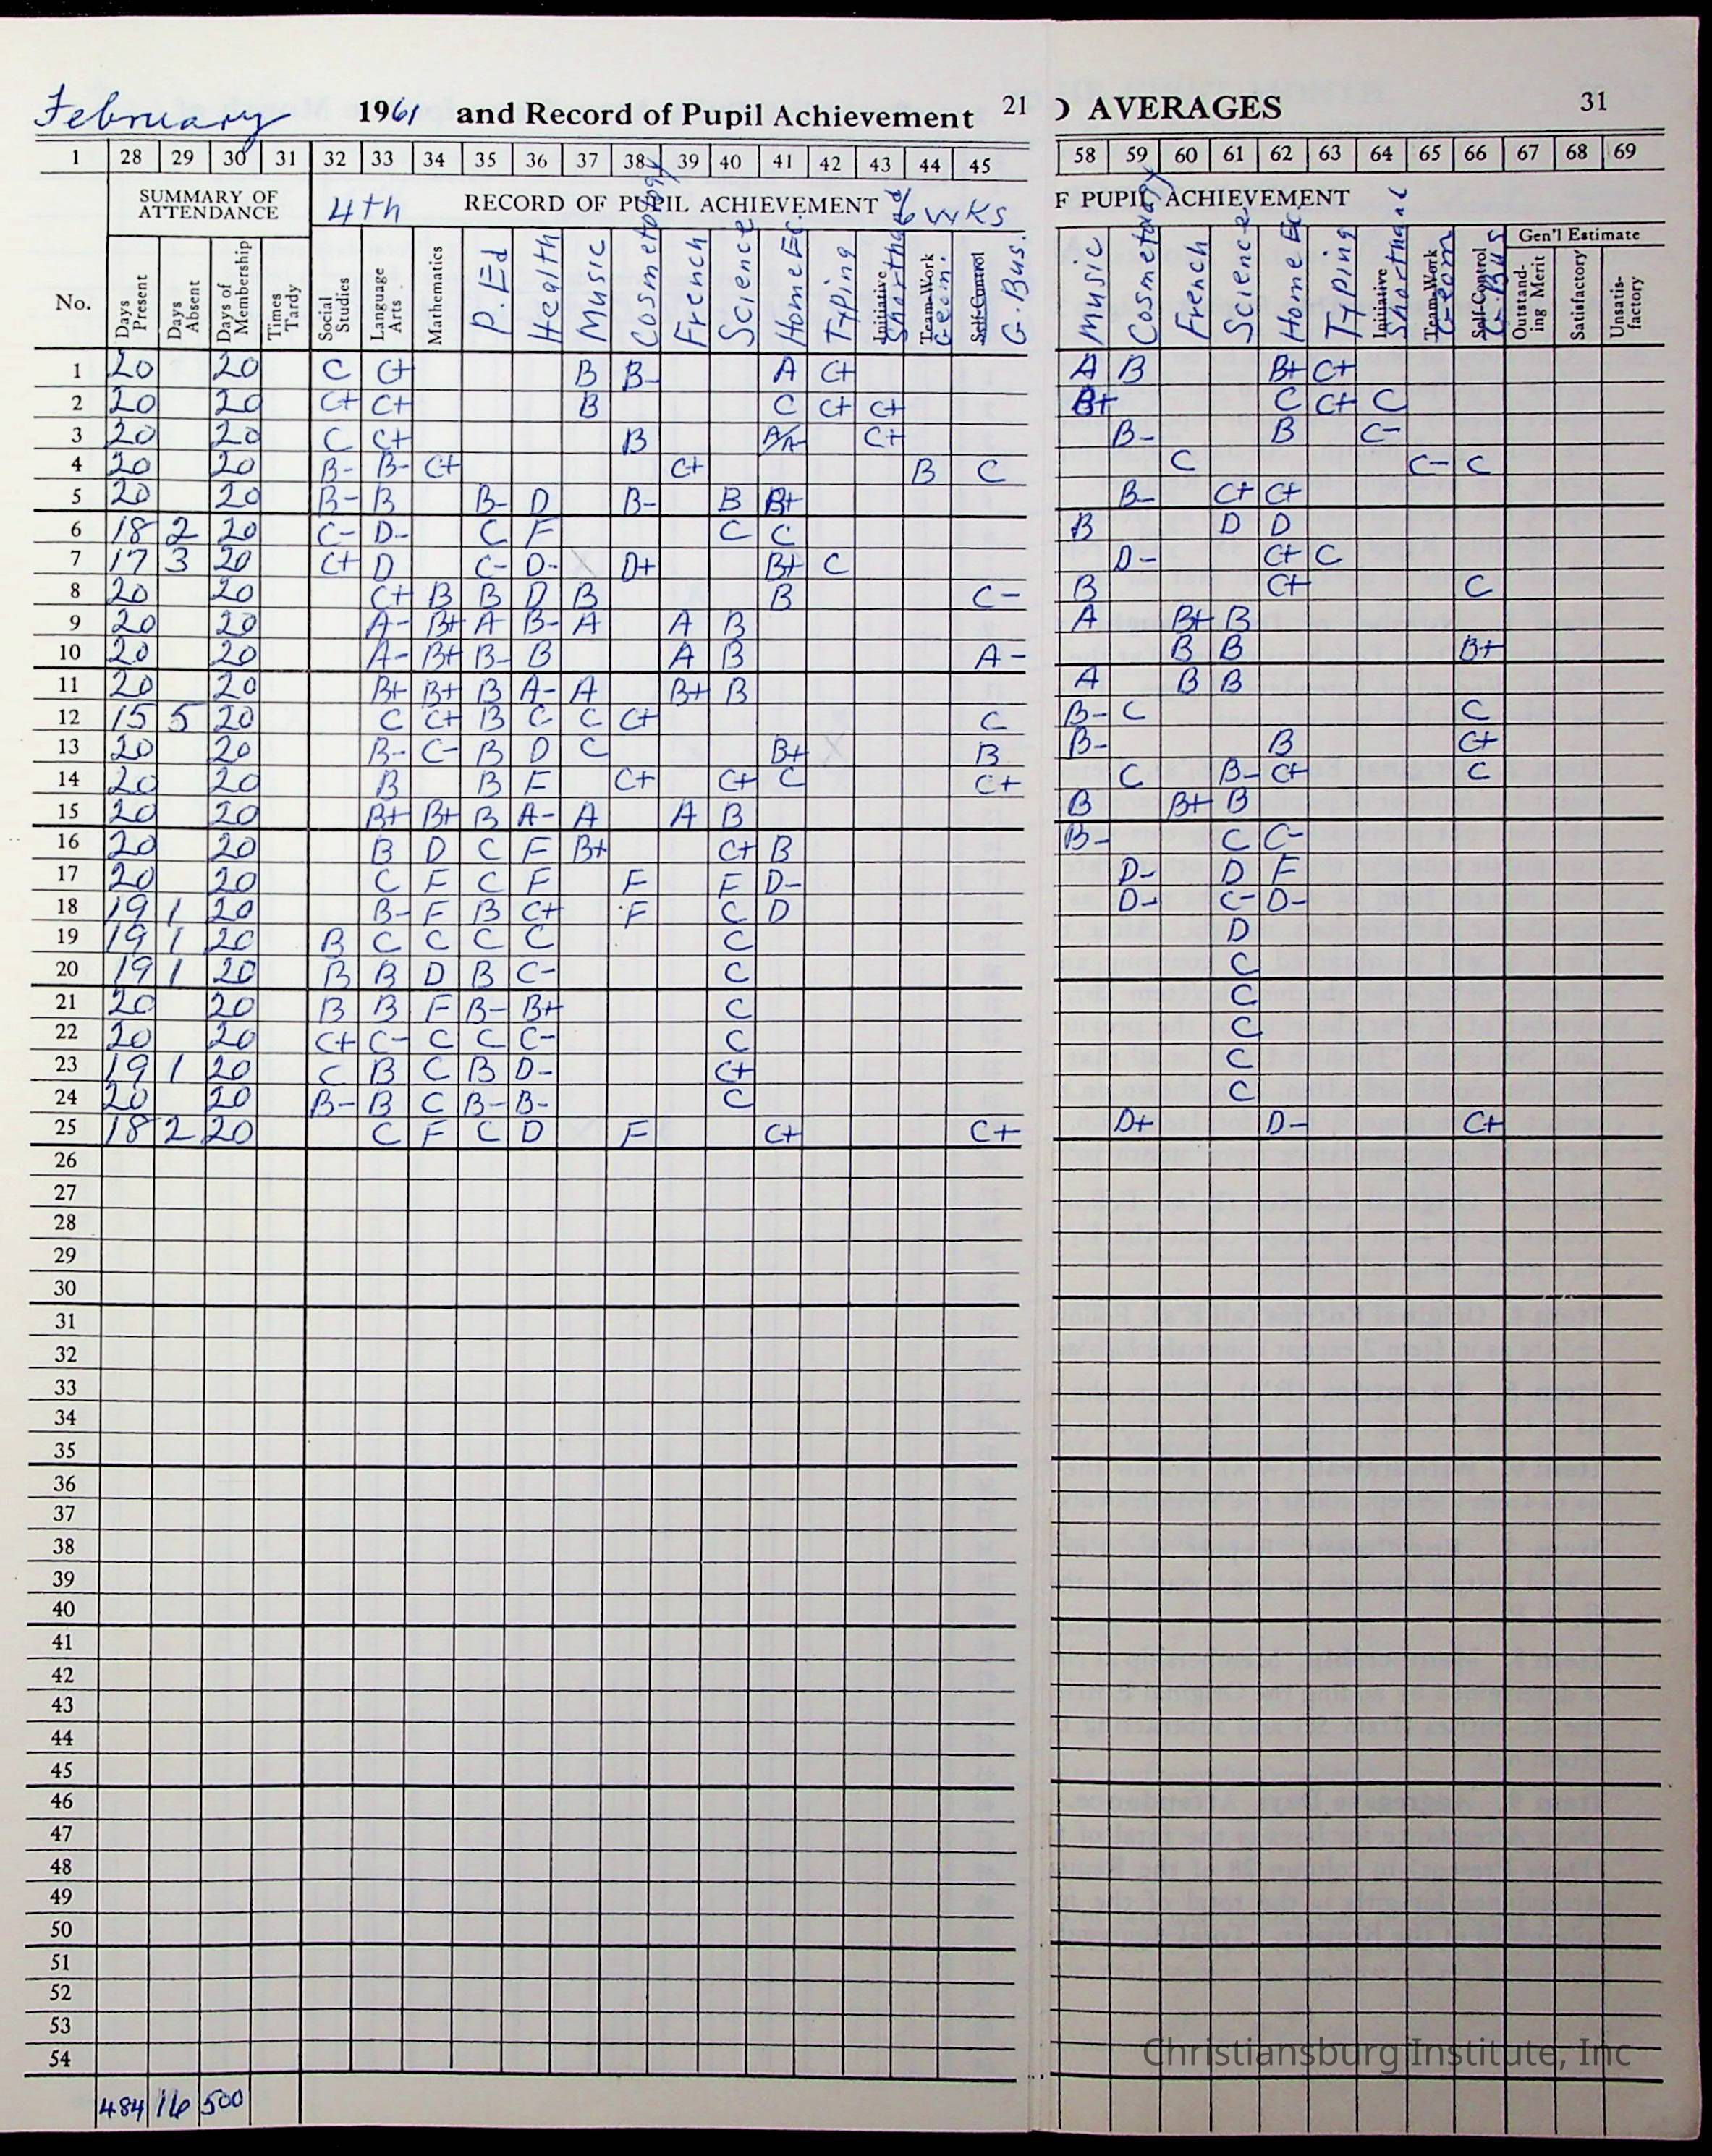 February 1961 and Record of Pupil Achievement 21 AVERAGES 31
1 28 29 30 31 32 33 34 35 36 37 38 39 40 41 42 43 44 45 58 59 60 61 62 63 64 65 66 67 68 69
SUMMARY OF ATTENDANCE 4th RECORD OF PUPIL ACHIEVEMENT 6 WKS F PUPIL ACHIEVEMENT
Gen'l Estimate
No. Days Present Days Absent Days of Membership Times Tardy Social Studies Language Arts Mathematics P.Ed Health Music Cosmetology French Science Home Ec. Typing Initiative Shorthand Team-Work Geom. Self-Control G. Bus. Music Cosmetology French Science Home Ec. Typing Initiative Shorthand Team-Work Geom Self-Control G-Bus Outstanding Merit Satisfactory Unsatis-factory
1 20 20 C C+ B B- A C+ A B B+ C+
2 20 20 C+ C+ B C C+ C+ B+ C C+ C
3 20 20 C C+ B B/A- C+ B- B C-
4 20 20 B- B- C+ C+ B C C C- C
5 20 20 B- B B- D B- B B+ B- C+ C+
6 18 2 20 C- D- C F C C B D D
7 17 3 20 C+ D C- D- D+ B+ C D- C+ C
8 20 20 C+ B B D B B C- B C+ C
9 20 20 A- B+ A B- A A B A B+ B
10 20 20 A- B+ B- B A B A- B B B+
11 20 20 B+ B+ B A- A B+ B A B B
12 15 5 20 C C+ B C C C+ C B- C C
13 20 20 B- C- B D C B+ B B- B C+
14 20 20 B B F C+ C+ C C+ C B- C+ C
15 20 20 B+ B+ B A- A A B B B+ B
16 20 20 B D C F B+ C+ B B- C C-
17 20 20 C F C F F F D- D- D F
18 19 1 20 B- F B C+ F C D D- C- D-
19 19 1 20 B C C C C C D
20 19 1 20 B B D B C- C C
21 20 20 B B F B- B+ C C
22 20 20 C+ C- C C C- C C
23 19 1 20 C B C B D- C+ C
24 20 20 B- B C B- B- C C
25 18 2 20 C F C D F C+ C+ D+ D- C+
26
27
28
29
30
31
32
33
34
35
36
37
38
39
40
41
42
43
44
45
46
47
48
49
50
51
52
53
54
484 16 500
Christiansburg Institute, Inc